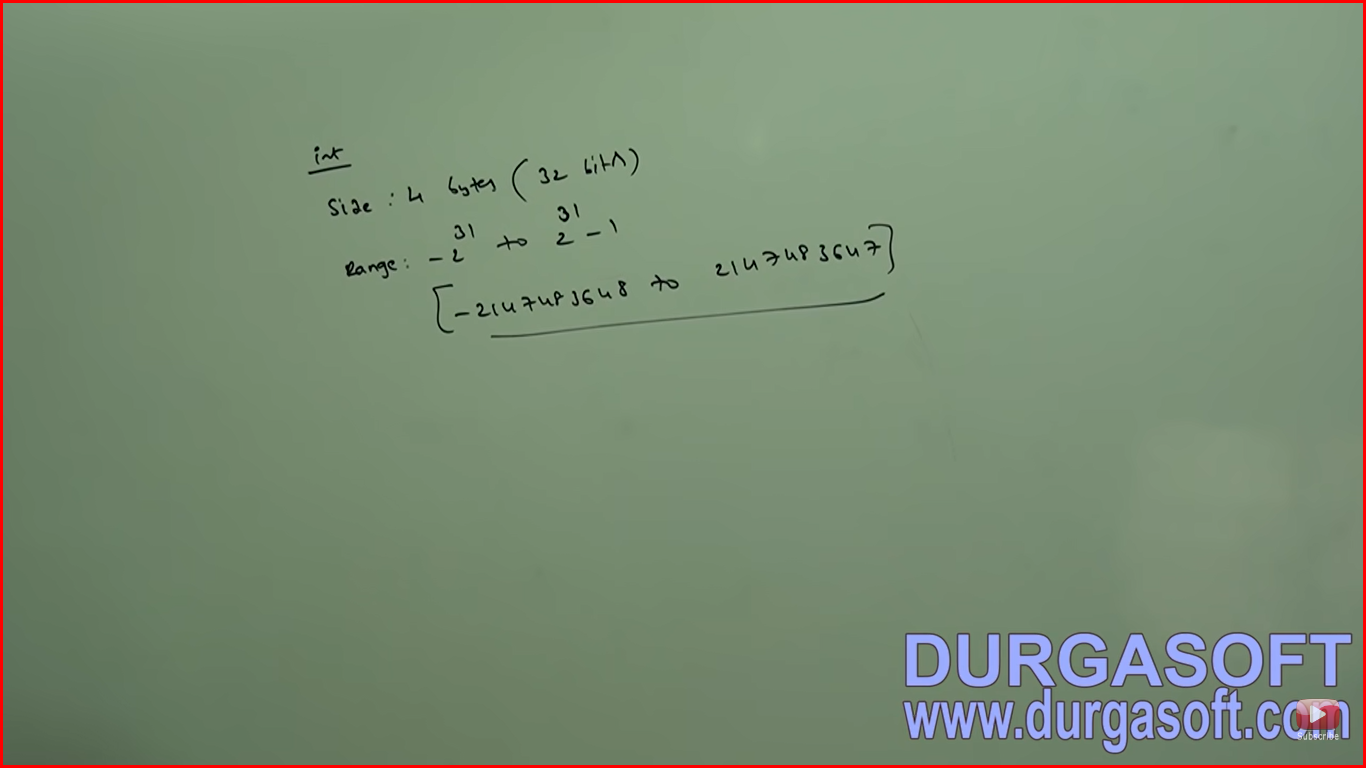 int
Size : 4 bytes (32 bits)
Range: -2³¹ to 2³¹ - 1
[-2147483648 to 2147483647]
DURGASOFT
www.durgasoft.com
Subscribe